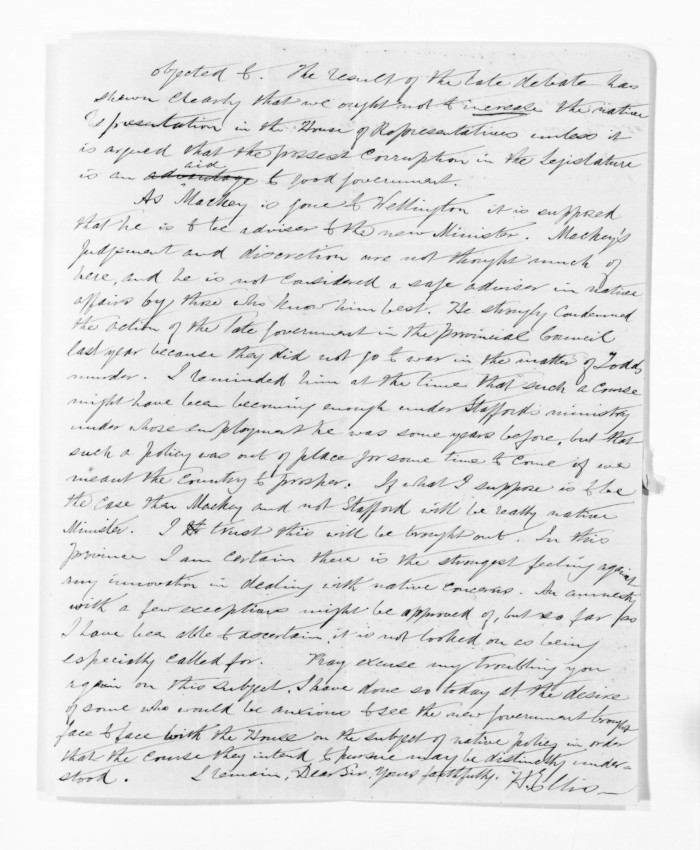 objected to. The result of the late debate has
shewn clearly that we ought not to increase the native
representation in the House of Representatives unless it
is argued that the grossest corruption in the Legislature
is an advantage aid to good government.
As Mackay is gone to Wellington it is supposed
that he is to be adviser to the new Minister. Mackay's
judgement and discretion are not thought much of
here, and he is not considered a safe adviser in native
affairs by those who know him best. He strongly condemned
the action of the late Government in the Provincial Council
last year because they did not go to war in the matter of Todds
murder. I reminded him at the time that such a course
might have been becoming enough under Stafford's ministry
under whose employment he was some years before, but that
such a policy was out of place for some time to come if we
meant the Country to prosper. If what I suppose is to be
the case then Mackay and not Stafford will be really native
Minister. I trust this will be brought out. In this
Province I am certain there is the strongest feeling against
any innovation in dealing with native concerns. An amnesty
with a few exceptions might be approved of, but so far as
I have been able to ascertain, it is not looked on as being
especially called for. Pray excuse my troubling you
again on this subject. I have done so today at the desire
of some who would be anxious to see the new Government brought
face to face with the House on the subject of native policy in order
that the course they intend to pursue may be distinctly under-
stood. I remain, Dear Sir, Yours faithfully. Ellis